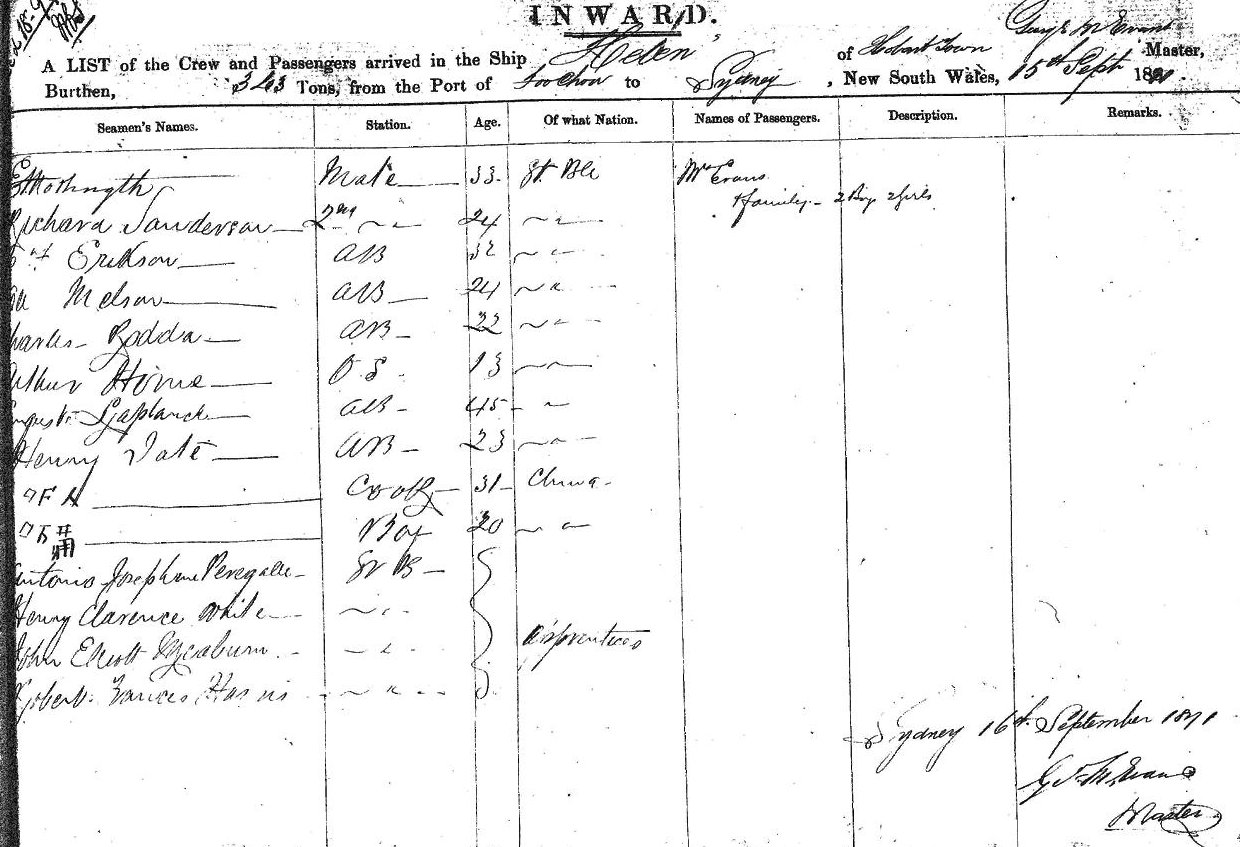 INWARD.
A LIST of the Crew and Passengers arrived in the Ship "Helen" of Hobart Town Master,
Burthen, 343 Tons, from the Port of Foochow to Sydney, New South Wales, 15th Sept 1871.
Seamen's Names. Station. Age. Of what Nation. Names of Passengers. Description. Remarks.
Mate 33 Gt. Mrs Evans
Family - 2 Boys 2 Girls
Richard Sanderson 2nd 24
Erikson AB 32
Nelson AB 24
Charles Rodda AB 22
Arthur Horne O.S. 13
August Laplanch AB 45
Henry Tate AB 23
Cook 31 China
Boy 20
Antonio Josephine
Henry Clarence White
John Elliott Apprentices
Robert Frances Harris
Sydney 16th September 1871
Master